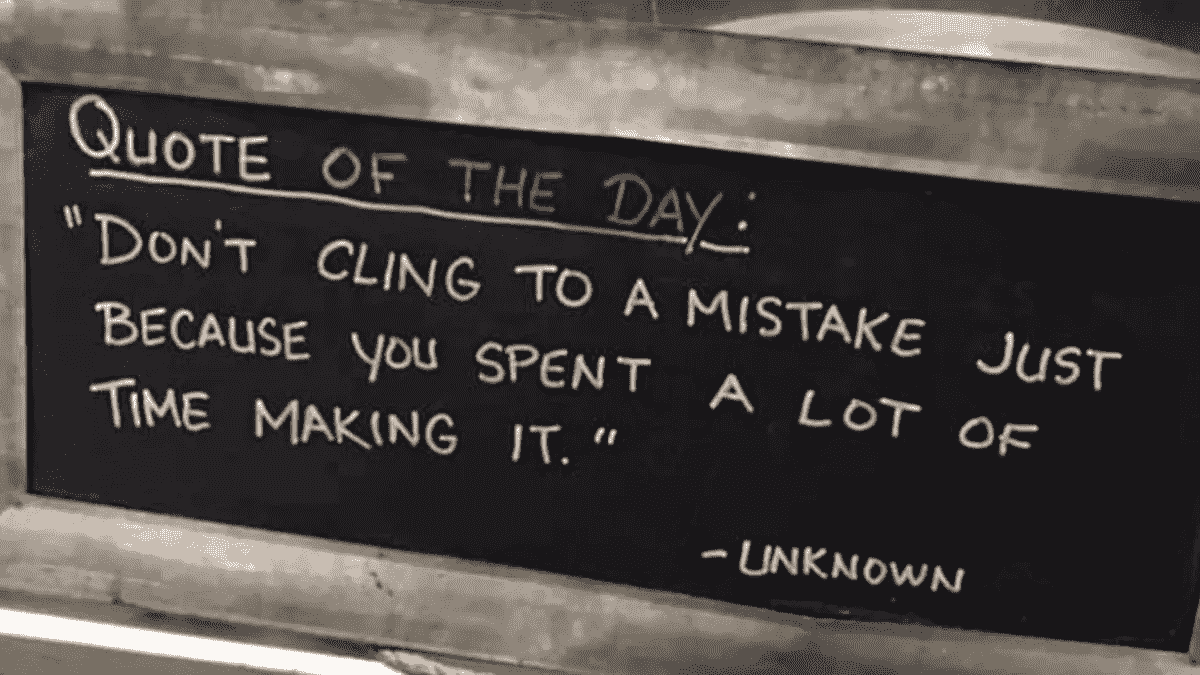 QUOTE OF THE DAY:
"DON'T CLING TO A MISTAKE JUST
BECAUSE YOU SPENT A LOT OF
TIME MAKING IT."
-UNKNOWN